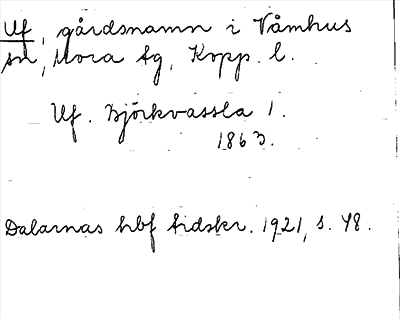 Uf, gårdsnamn i Våmhus
sn, Mora tg, Kopp. l.
Uf. Björkvassla 1.
1863.
Dalarnas hbf tidskr. 1921, s. 48.